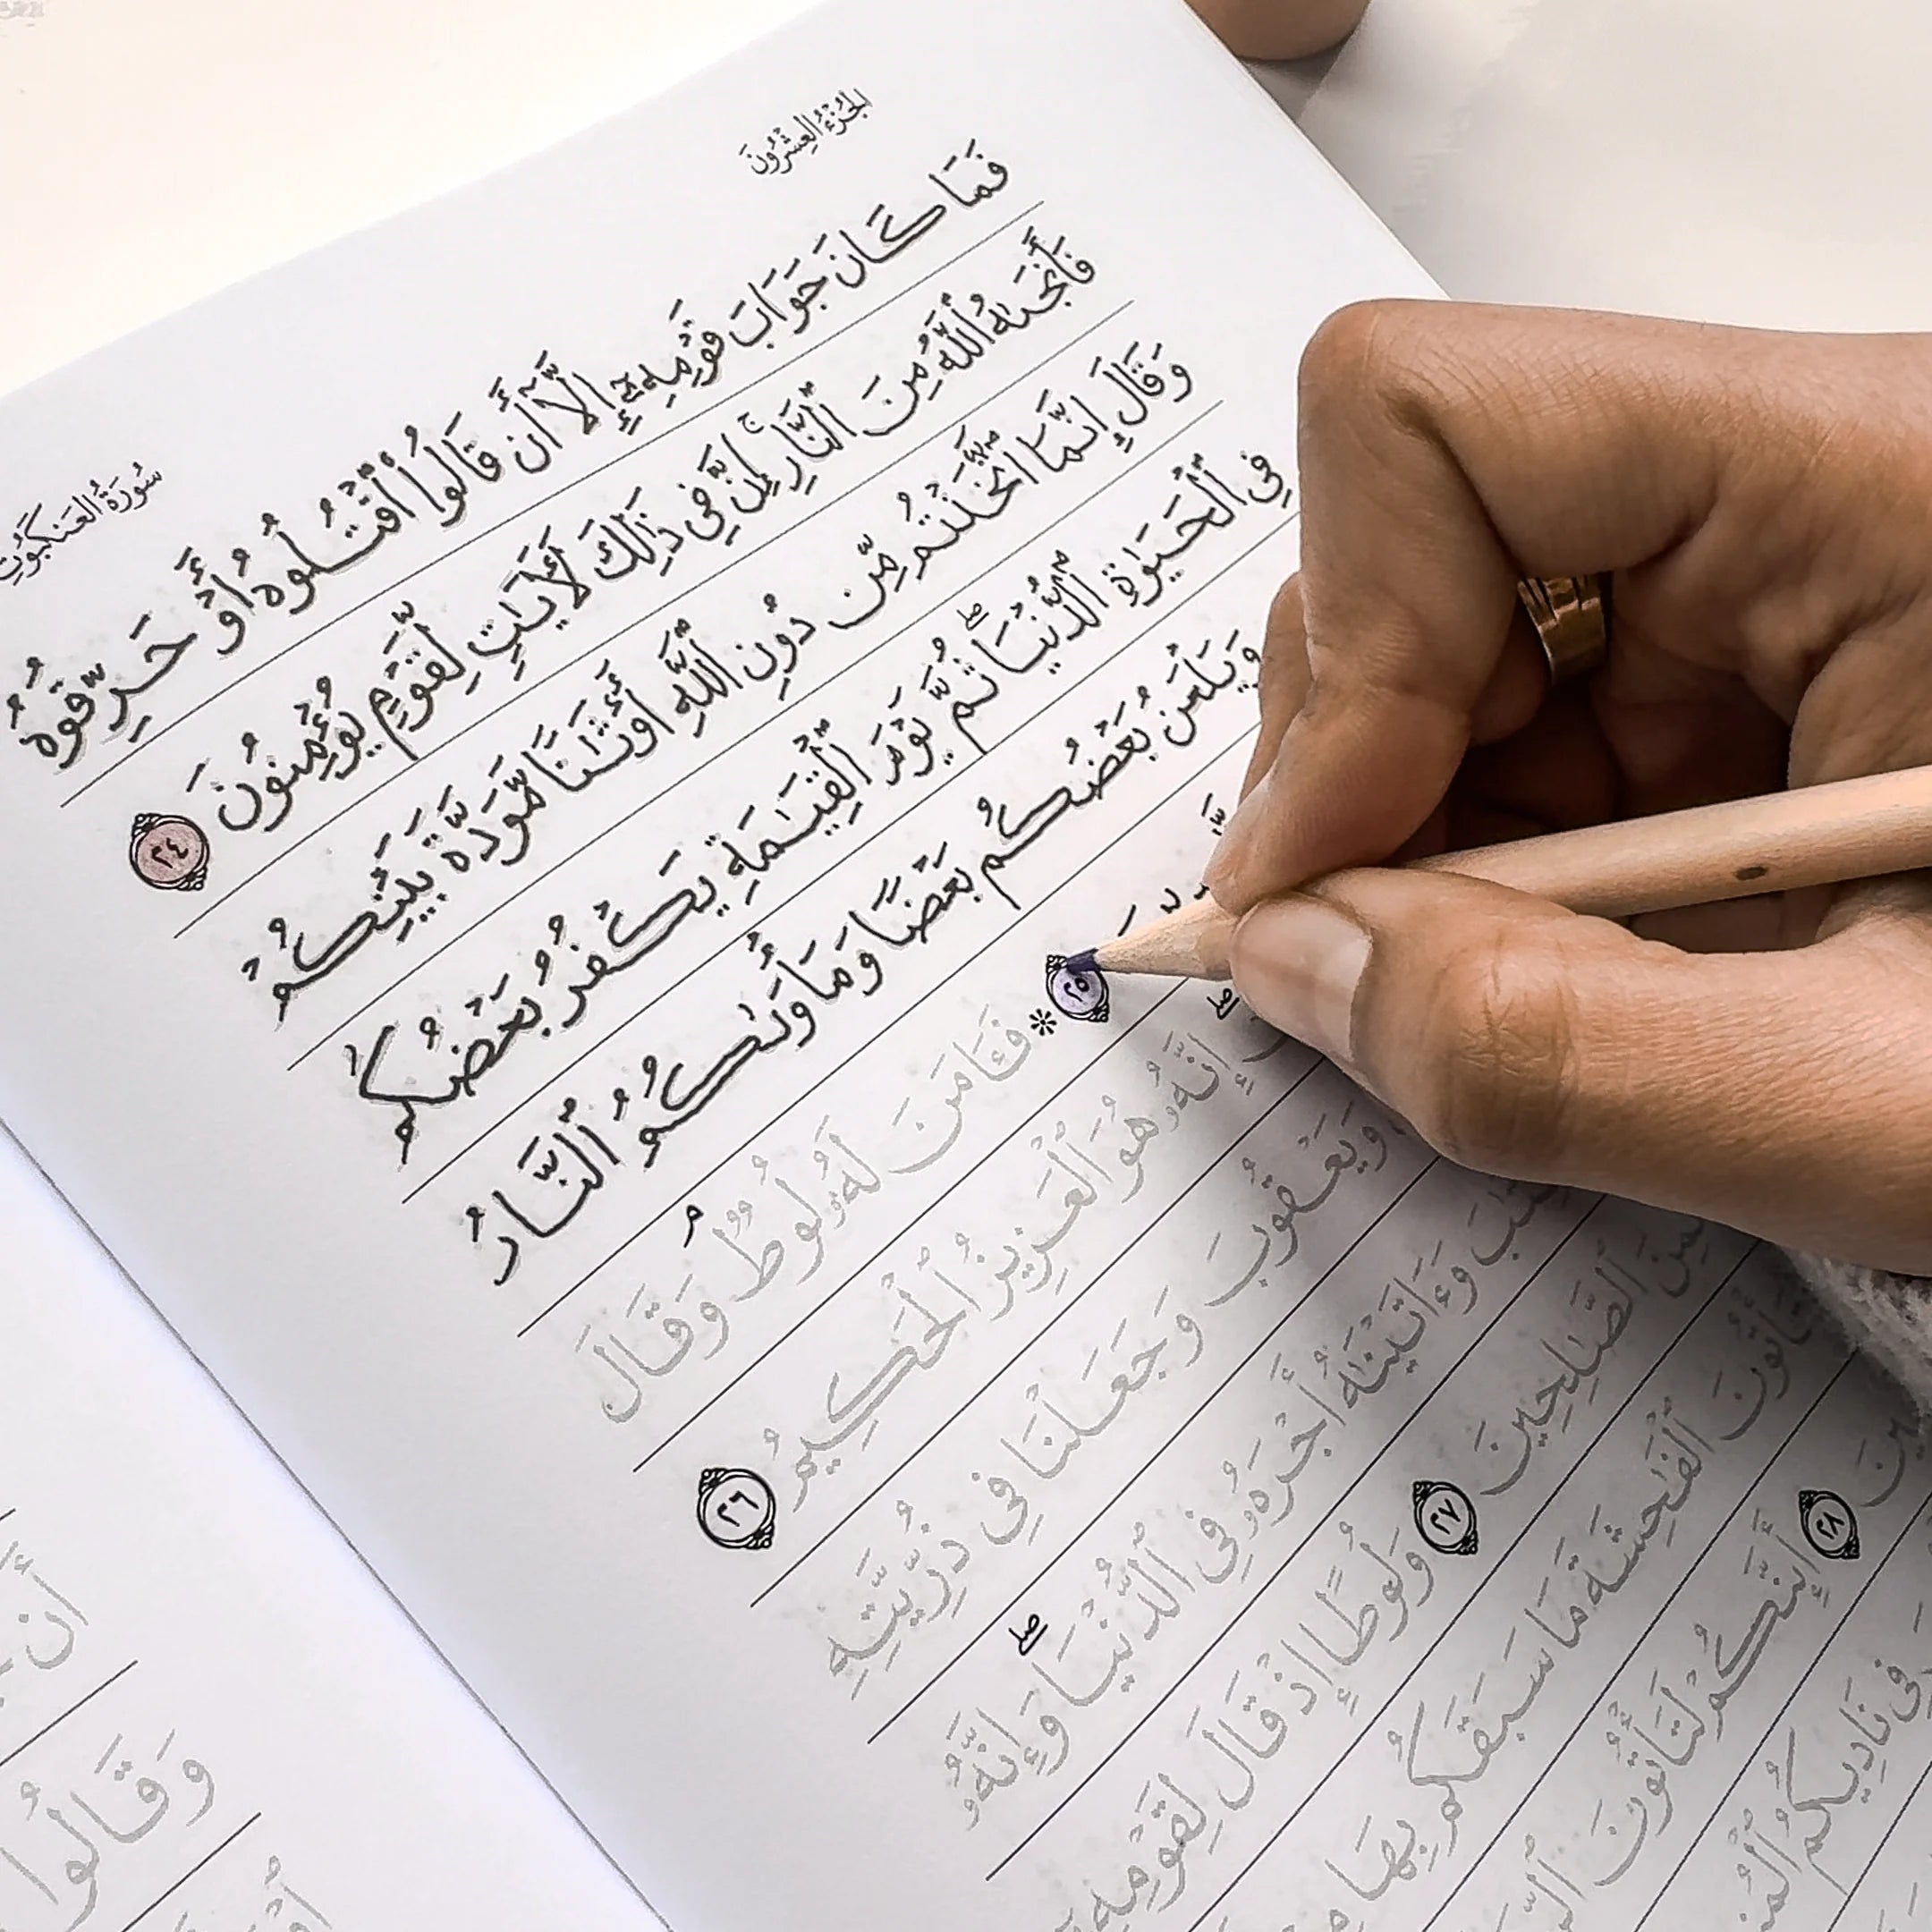 الجُزْءُ العِشْرُونَ
سُورَةُ العَنكَبُوتِ
فَمَا كَانَ جَوَابَ قَوْمِهِۦٓ إِلَّآ أَن قَالُوا۟ ٱقْتُلُوهُ أَوْ حَرِّقُوهُ
فَأَنجَىٰهُ ٱللَّهُ مِنَ ٱلنَّارِ ۚ إِنَّ فِى ذَٰلِكَ لَءَايَٰتٍ لِّقَوْمٍ يُؤْمِنُونَ ٢٤
وَقَالَ إِنَّمَا ٱتَّخَذْتُم مِّن دُونِ ٱللَّهِ أَوْثَٰنًا مَّوَدَّةَ بَيْنِكُمْ
فِى ٱلْحَيَوٰةِ ٱلدُّنْيَا ۖ ثُمَّ يَوْمَ ٱلْقِيَٰمَةِ يَكْفُرُ بَعْضُكُم
وَيَلْعَنُ بَعْضُكُم بَعْضًا وَمَأْوَىٰكُمُ ٱلنَّارُ
٢٥ * فَـَٔامَنَ لَهُۥ لُوطٌ ۘ وَقَالَ
إِنَّهُۥ هُوَ ٱلْعَزِيزُ ٱلْحَكِيمُ ٢٦
وَيَعْقُوبَ وَجَعَلْنَا فِى ذُرِّيَّتِهِ
وَءَاتَيْنَٰهُ أَجْرَهُۥ فِى ٱلدُّنْيَا ۖ وَإِنَّهُۥ
ٱلصَّٰلِحِينَ ٢٧ وَلُوطًا إِذْ قَالَ لِقَوْمِهِۦٓ
تَأْتُونَ ٱلْفَٰحِشَةَ مَا سَبَقَكُم بِهَا
٢٨ أَئِنَّكُمْ لَتَأْتُونَ
فِى نَادِيكُمُ
أَن
وَقَالُوا۟